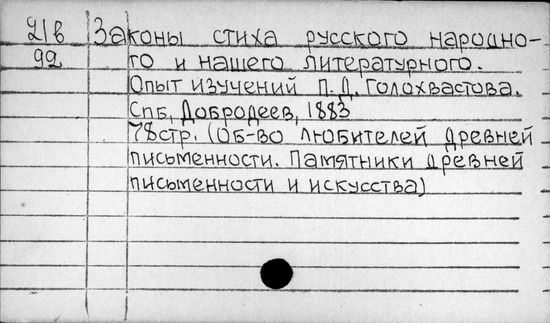 21в Законы стиха русского народно-
92 го и нашего литературного.
Опыт изучений П.Д. Голохвастова.
Спб, Добродеев, 1883
78стр. (Об-во любителей древней
письменности. Памятники древней
письменности и искусства)